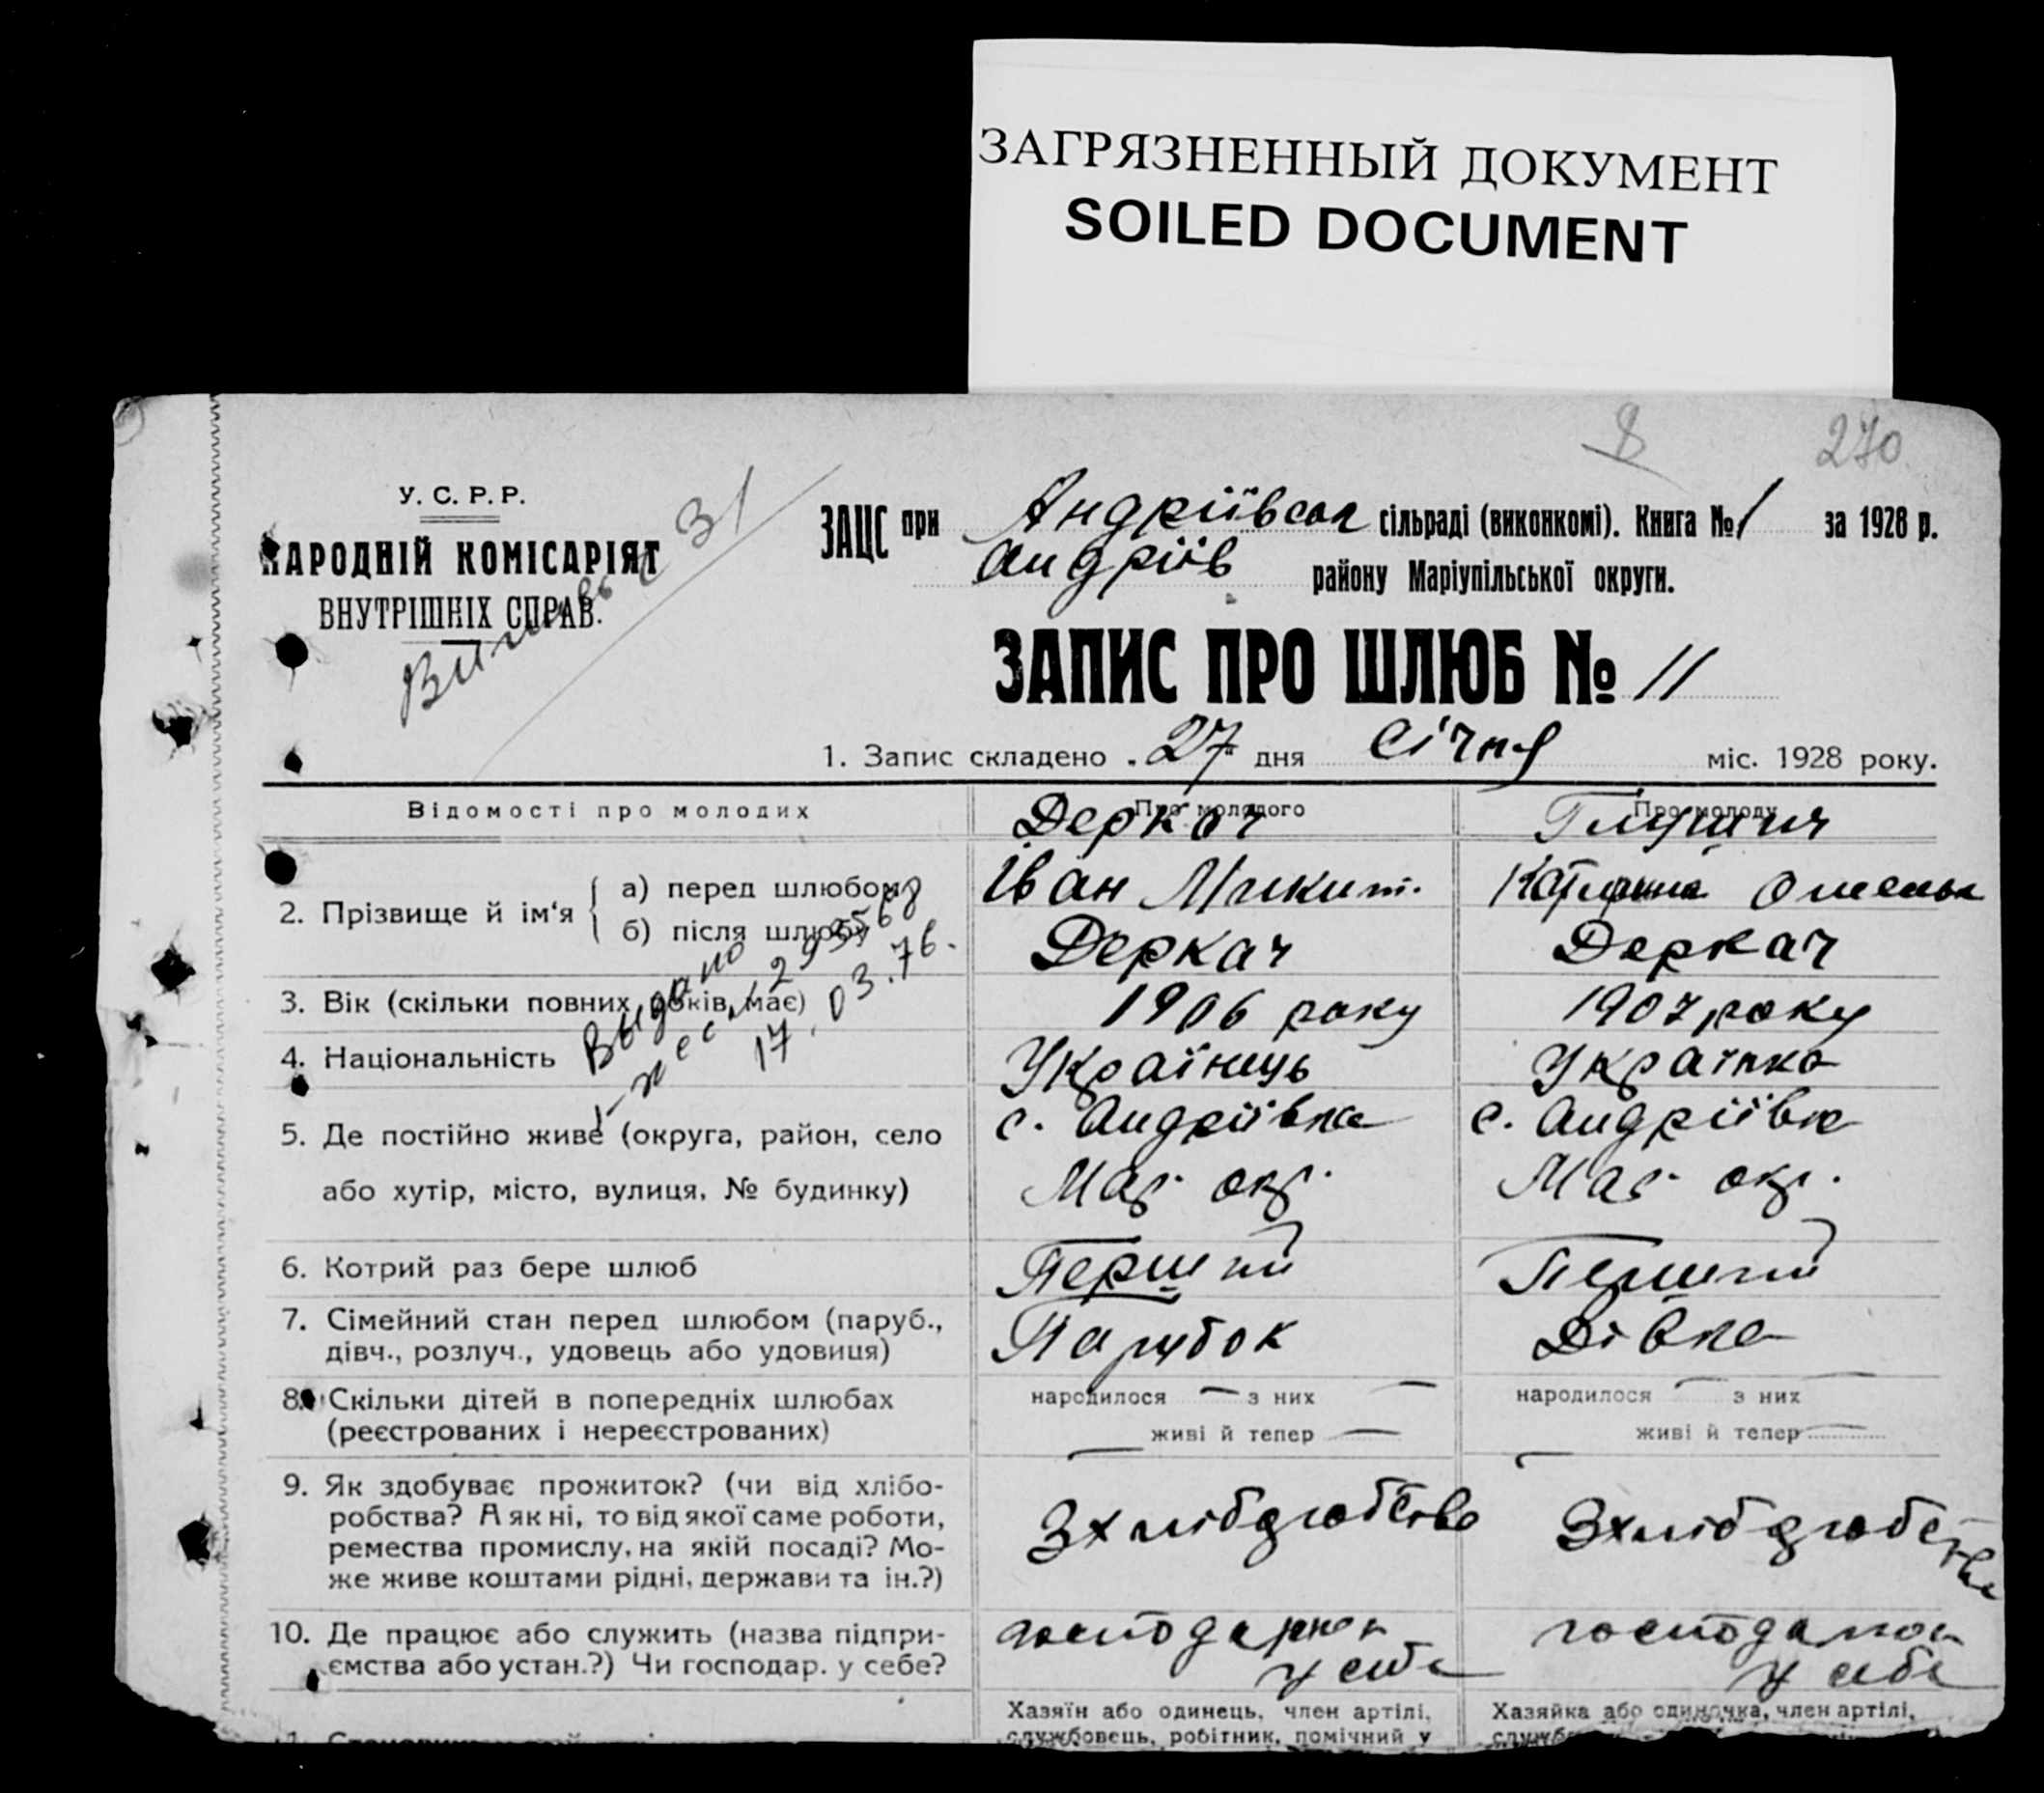 ЗАГРЯЗНЕННЫЙ ДОКУМЕНТ
SOILED DOCUMENT
8 270
У. С. Р. Р.
НАРОДНІЙ КОМІСАРІЯТ
ВНУТРІШНІХ СПРАВ.
31
ЗАЦС при Андріївськ сільраді (виконкомі). Книга № 1 за 1928 р.
Андріїв району Маріупільської округи.
ЗАПИС ПРО ШЛЮБ № 11
1. Запис складено „27“ дня Січня міс. 1928 року.
Відомості про молодих Про молодого Про молоду
Деркач
2. Прізвище й ім‘я { а) перед шлюбом Іван Микит. Омельк
б) після шлюбу Деркач Деркач
Выдано
17.03.76.
3. Вік (скільки повних років має) 1906 року 1907 року
4. Національність Українець Українка
5. Де постійно живе (округа, район, село с. Андріївка с. Андріївка
або хутір, місто, вулиця, № будинку) Мар. окр. Мар. окр.
6. Котрий раз бере шлюб Перший Перший
7. Сімейний стан перед шлюбом (паруб., Парубок Дівка
дівч., розлуч., удовець або удовиця)
8. Скільки дітей в попередніх шлюбах народилося — з них — народилося — з них
(реєстрованих і нереєстрованих) живі й тепер — живі й тепер —
9. Як здобуває прожиток? (чи від хлібо-
робства? А як ні, то від якої саме роботи,
ремества промислу, на якій посаді? Мо-
же живе коштами рідні, держави та ін.?)
10. Де працює або служить (назва підпри-
ємства або устан.?) Чи господар. у себе? у себе у себе
Хазяїн або одинець, член артілі, Хазяйка або одиночка, член артілі,
службовець, робітник, помічний у